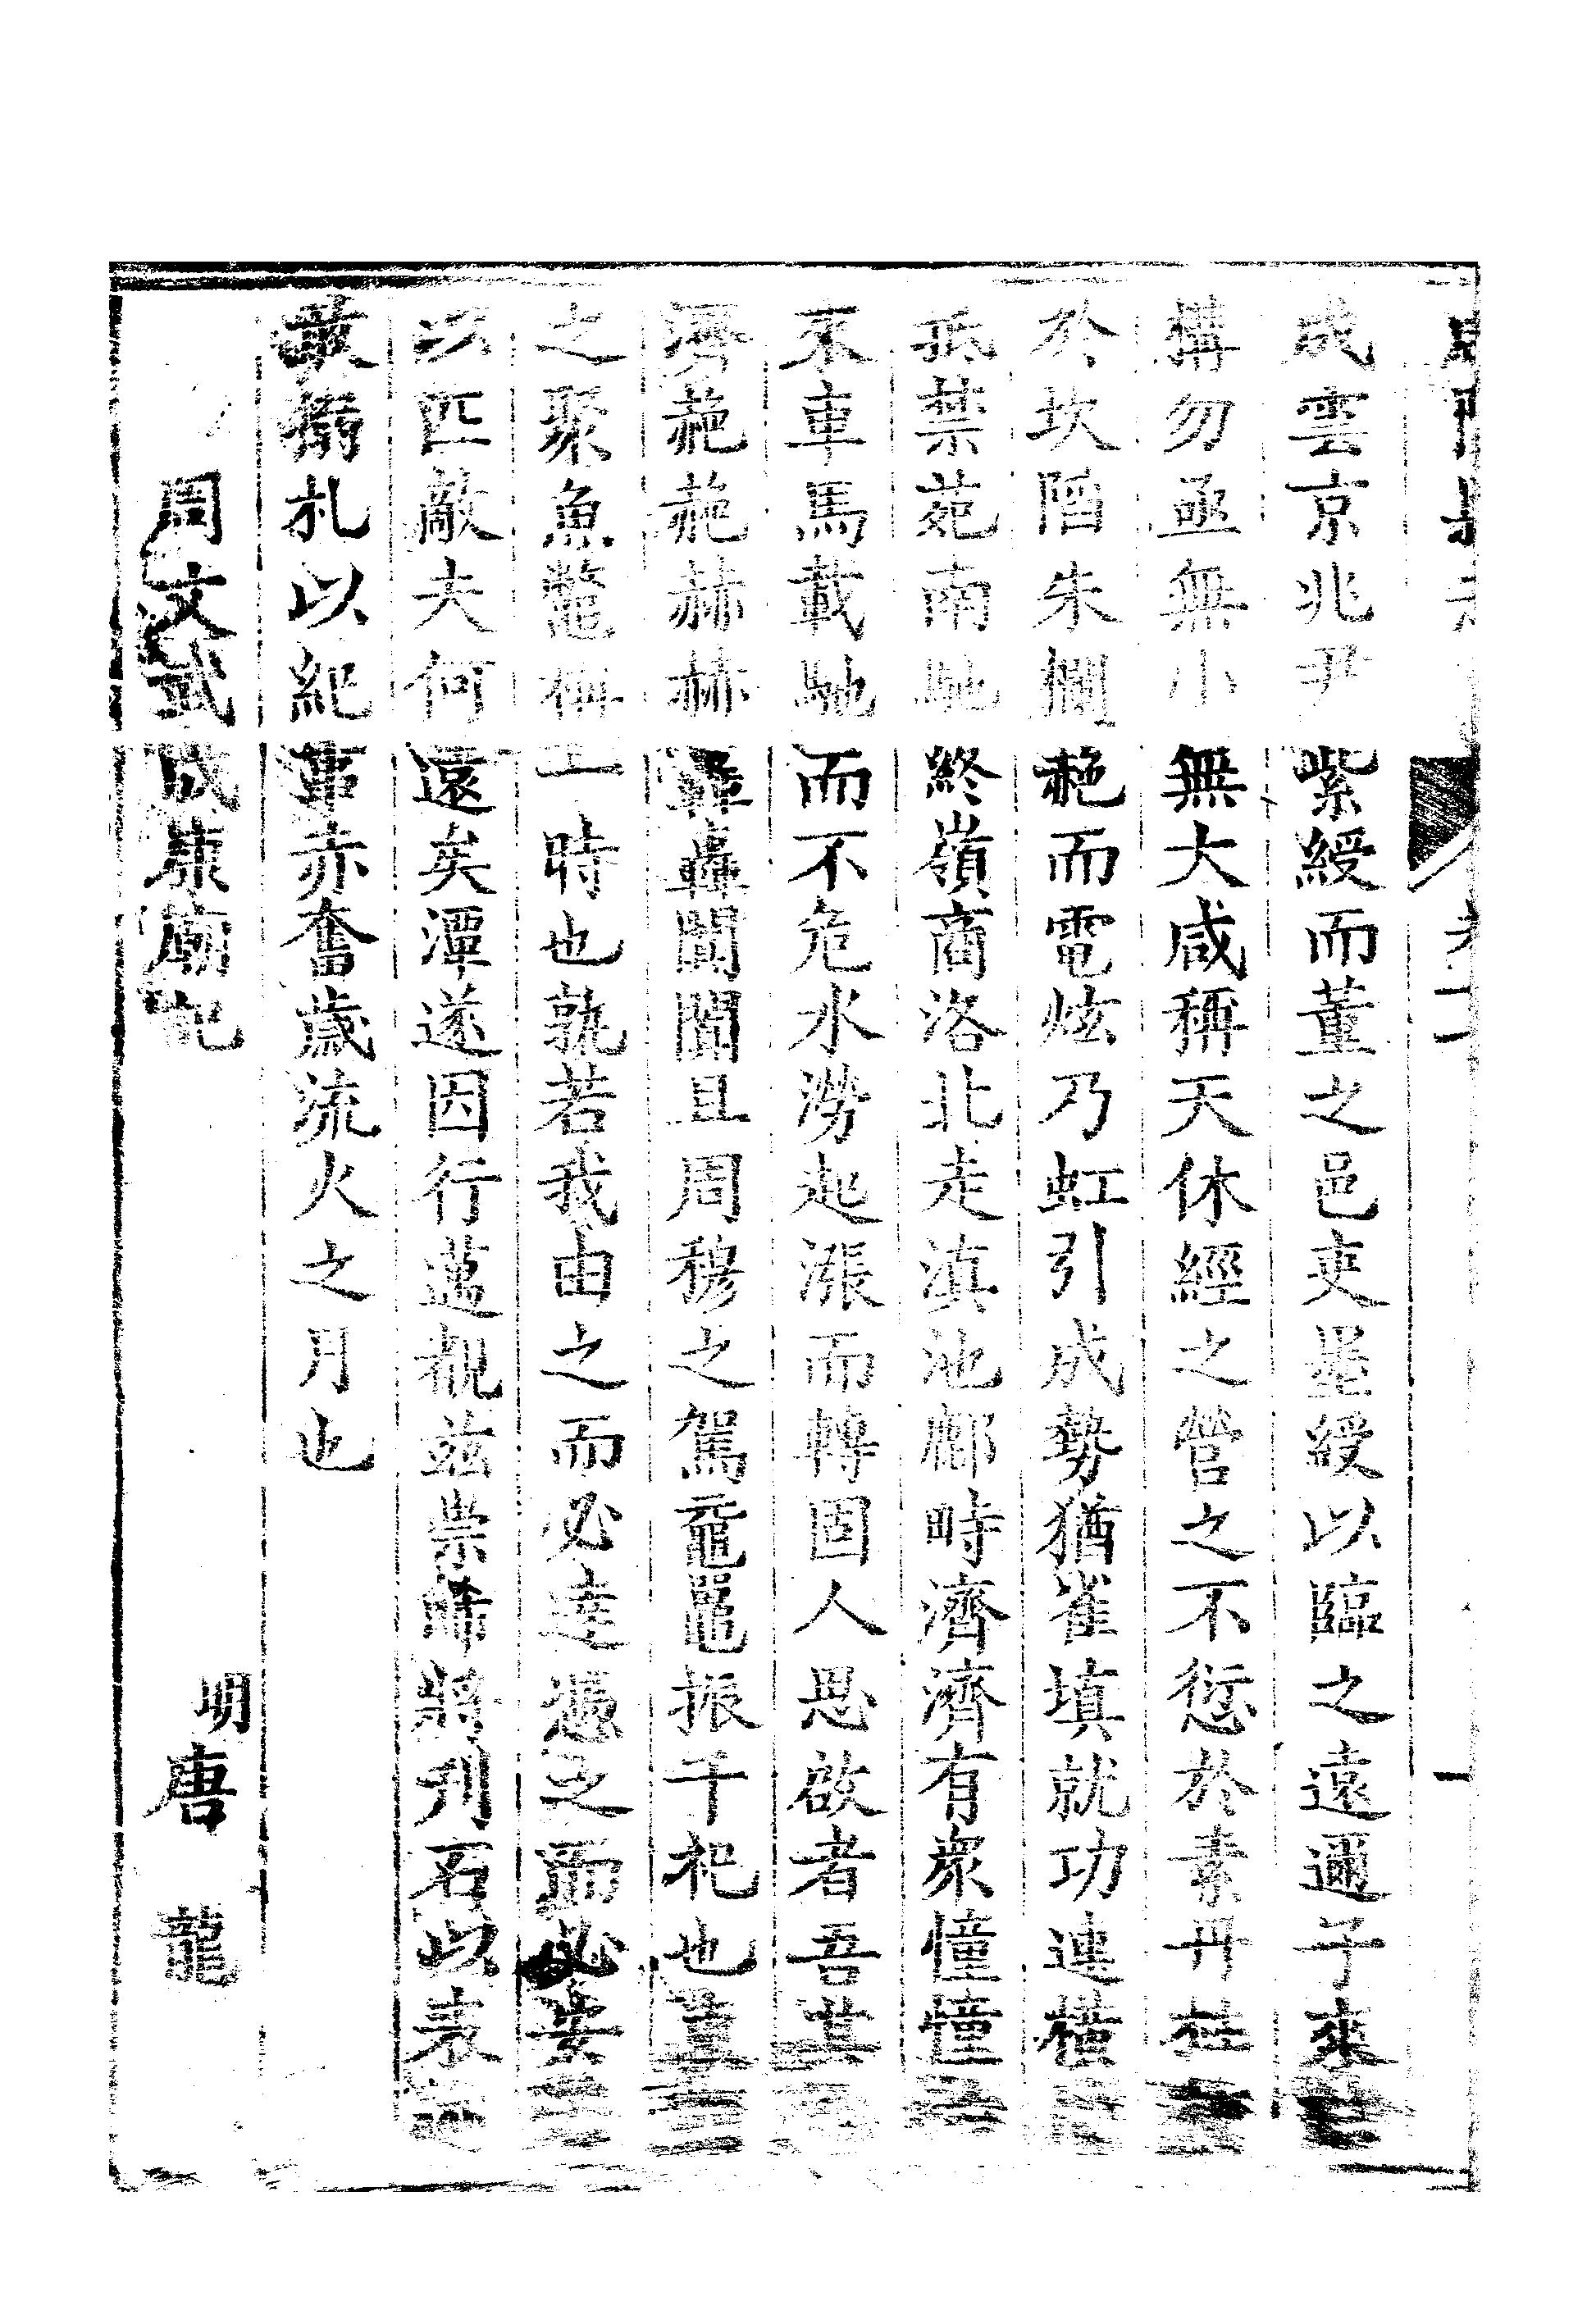 成雲京兆尹紫綬而董之邑吏墨綬以臨之遠邇子來
構勿亟無小無大咸稱天休經之營之不愆於素丹柱
於坎陷朱欄赩而電炫乃虹引成勢猶雀填就功連橫
抵禁苑南馳終嶺商洛北走滇池鄜畤濟濟有衆憧憧
來車馬載馳而不危水澇起漲而轉固人思啟者吾其
濟赩赩赫赫轟轟闐闐且周穆之駕黿鼉振千祀也
之聚魚鼈稱一時也孰若我由之而必達憑之而必安
以匹敵夫何遠矣潭遂因行邁覩茲崇飾將刋石以表
敢搦札以紀事赤奮歲流火之月也
周文武成康廟記
明唐龍